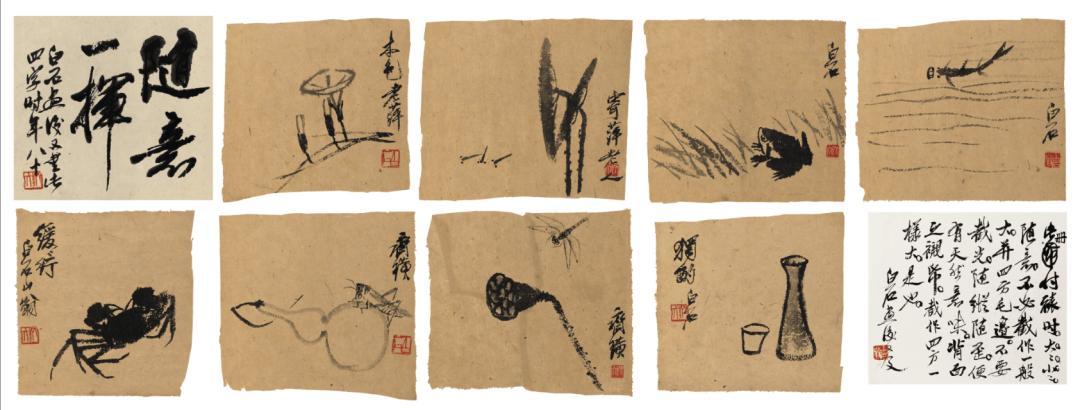 隨意
一揮
白石畫後又書此
四字時年八十
老萍
寄萍老人
白石
白石
緩行
白石山翁
齊璜
齊璜
獨酌
白石
此冊付裱時大〻小〻
隨意不必截作一般
大并四方毛邊不要
截光隨縱隨歪便
有天然意味背面
截作四方一
樣大是也
白石畫後又及